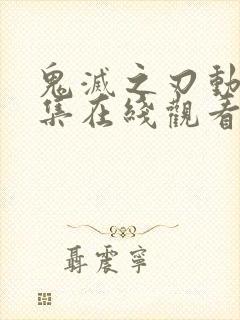 鬼滅之刃動
集在綫觀看
聶震寧